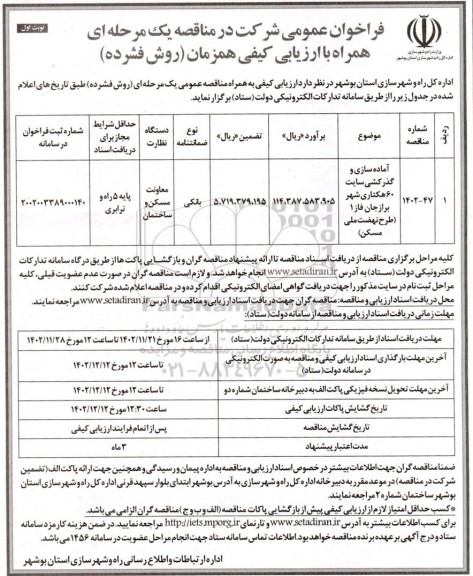 نوبت اول
فراخوان عمومی شرکت در مناقصه یک مرحله ای
همراه با ارزیابی کیفی همزمان (روش فشرده)
وزارت راه و شهرسازی
اداره کل راه و شهرسازی استان بوشهر
اداره کل راه و شهرسازی استان بوشهر در نظر دارد ارزیابی کیفی به همراه مناقصه عمومی یک مرحله ای (روش فشرده) طبق تاریخ های اعلام
شده در جدول زیر را از طریق سامانه تدارکات الکترونیکی دولت (ستاد) برگزار نماید.
ردیف
شماره مناقصه
موضوع
برآورد «ریال»
تضمین «ریال»
نوع ضمانتنامه
دستگاه نظارت
حداقل شرایط مجاز برای دریافت اسناد
شماره ثبت فراخوان در سامانه
۱
۱۴۰۲-۴۷
آماده سازی و گذرکشی سایت ۶۰ هکتاری شهر برازجان فاز ۱ (طرح نهضت ملی مسکن)
۱۱۴.۳۸۷.۵۸۳.۹۰۵
۵.۷۱۹.۳۷۹.۱۹۵
بانکی
معاونت مسکن و ساختمان
پایه ۵ راه و ترابری
۲۰۰۲۰۰۳۳۸۹۰۰۰۱۴۰
کلیه مراحل برگزاری مناقصه از دریافت اسناد مناقصه تا ارائه پیشنهاد مناقصه گران و بازگشایی پاکت ها از طریق درگاه سامانه تدارکات
الکترونیکی دولت (ستاد) به آدرس www.setadiran.ir انجام خواهد شد. و لازم است مناقصه گران در صورت عدم عضویت قبلی، کلیه
مراحل ثبت نام در سایت مذکور را جهت دریافت گواهی امضای الکترونیکی اقدام کرده و در مناقصه اعلام شده شرکت کنند.
محل دریافت اسناد ارزیابی و مناقصه: مناقصه گران جهت دریافت اسناد ارزیابی و مناقصه به آدرس www.setadiran.ir مراجعه نمایند.
مهلت زمانی دریافت اسناد ارزیابی و مناقصه از سامانه دولت (ستاد):
مهلت دریافت اسناد از طریق سامانه تدارکات الکترونیکی دولت (ستاد)
از ساعت ۱۶ مورخ ۱۴۰۲/۱۱/۲۱ تا ساعت ۱۲ مورخ ۱۴۰۲/۱۱/۲۸
آخرین مهلت بارگذاری اسناد ارزیابی کیفی و مناقصه به صورت الکترونیکی در سامانه دولت (ستاد)
تا ساعت ۱۲ مورخ ۱۴۰۲/۱۲/۱۲
آخرین مهلت تحویل نسخه فیزیکی پاکت الف به دبیرخانه ساختمان شماره دو
تا ساعت ۱۲ مورخ ۱۴۰۲/۱۲/۱۲
تاریخ گشایش پاکات ارزیابی کیفی
ساعت ۱۲:۳۰ مورخ ۱۴۰۲/۱۲/۱۲
تاریخ گشایش مناقصه
پس از اتمام فرایند ارزیابی کیفی
مدت اعتبار پیشنهاد
۳ ماه
ضمنا مناقصه گران جهت اطلاعات بیشتر در خصوص اسناد ارزیابی و مناقصه به اداره پیمان و رسیدگی و همچنین جهت ارائه پاکت الف (تضمین
شرکت در مناقصه) در موعد مقرر به دبیرخانه اداره کل راه و شهرسازی به آدرس بوشهر ابتدای بلوار سپهبد قرنی اداره کل راه و شهرسازی استان
بوشهر ساختمان شماره ۲ مراجعه نمایند.
* کسب حداقل امتیاز لازم از ارزیابی کیفی پیش از بازگشایی پاکات مناقصه (الف و ب و ج) مناقصه گران الزامی می باشد.
برای کسب اطلاعات بیشتر به آدرس www.setadiran.ir و تارنمای http://iets.mporg.ir مراجعه نمایید. در ضمن هزینه کارمزد سامانه
ستاد و درج آگهی بر عهده برنده مناقصه خواهد بود. اطلاعات تماس سامانه ستاد جهت انجام مراحل عضویت در سامانه ۱۴۵۶ می باشد.
اداره ارتباطات و اطلاع رسانی راه و شهرسازی استان بوشهر
ParsNamadData
۰۲۱-۸۸۳۴۹۶۷۰-۵